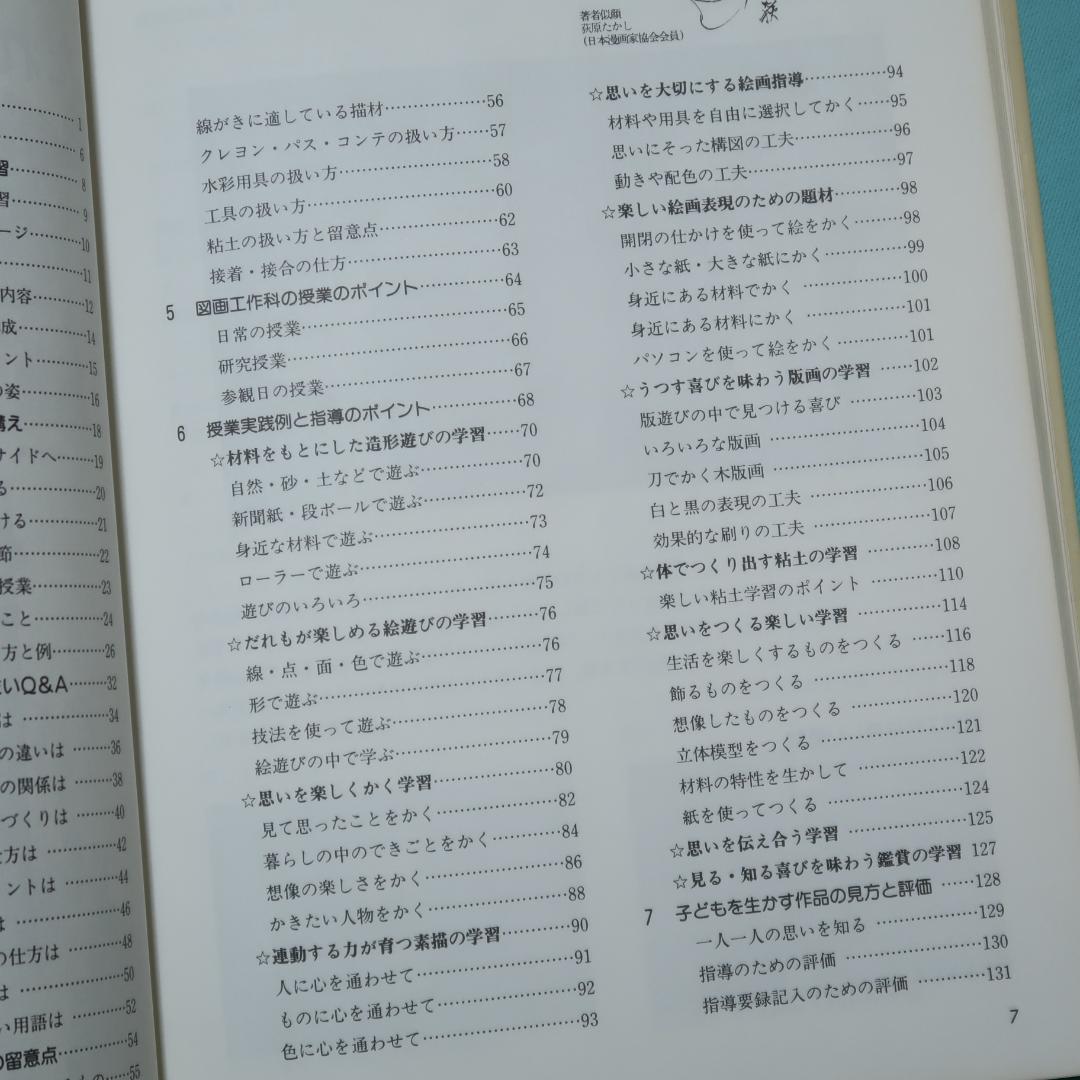 1
6
習 8
習 9
ージ 10
11
内容 12
成 14
ント 15
の姿 16
構え 18
サイドへ 19
る 20
ける 21
節 22
授業 23
こと 24
方と例 26
いQ&A 32
は 34
の違いは 36
の関係は 38
づくりは 40
方は 42
ントは 44
は 46
の仕方は 48
は 50
い用語は 52
の留意点 54
55
著者似顔
荻原たかし
(日本漫画家協会会員)
線がきに適している描材 56
クレヨン・パス・コンテの扱い方 57
水彩用具の扱い方 58
工具の扱い方 60
粘土の扱い方と留意点 62
接着・接合の仕方 63
5 図画工作科の授業のポイント 64
日常の授業 65
研究授業 66
参観日の授業 67
6 授業実践例と指導のポイント 68
☆材料をもとにした造形遊びの学習 70
自然・砂・土などで遊ぶ 70
新聞紙・段ボールで遊ぶ 72
身近な材料で遊ぶ 73
ローラーで遊ぶ 74
遊びのいろいろ 75
☆だれもが楽しめる絵遊びの学習 76
線・点・面・色で遊ぶ 76
形で遊ぶ 77
技法を使って遊ぶ 78
絵遊びの中で学ぶ 79
☆思いを楽しくかく学習 80
見て思ったことをかく 82
暮らしの中のできごとをかく 84
想像の楽しさをかく 86
かきたい人物をかく 88
☆連動する力が育つ素描の学習 90
人に心を通わせて 91
ものに心を通わせて 92
色に心を通わせて 93
☆思いを大切にする絵画指導 94
材料や用具を自由に選択してかく 95
思いにそった構図の工夫 96
動きや配色の工夫 97
☆楽しい絵画表現のための題材 98
開閉の仕かけを使って絵をかく 98
小さな紙・大きな紙にかく 99
身近にある材料でかく 100
身近にある材料にかく 101
パソコンを使って絵をかく 101
☆うつす喜びを味わう版画の学習 102
版遊びの中で見つける喜び 103
いろいろな版画 104
刀でかく木版画 105
白と黒の表現の工夫 106
効果的な刷りの工夫 107
☆体でつくり出す粘土の学習 108
楽しい粘土学習のポイント 110
☆思いをつくる楽しい学習 114
生活を楽しくするものをつくる 116
飾るものをつくる 118
想像したものをつくる 120
立体模型をつくる 121
材料の特性を生かして 122
紙を使ってつくる 124
☆思いを伝え合う学習 125
☆見る・知る喜びを味わう鑑賞の学習 127
7 子どもを生かす作品の見方と評価 128
一人一人の思いを知る 129
指導のための評価 130
指導要録記入のための評価 131
7